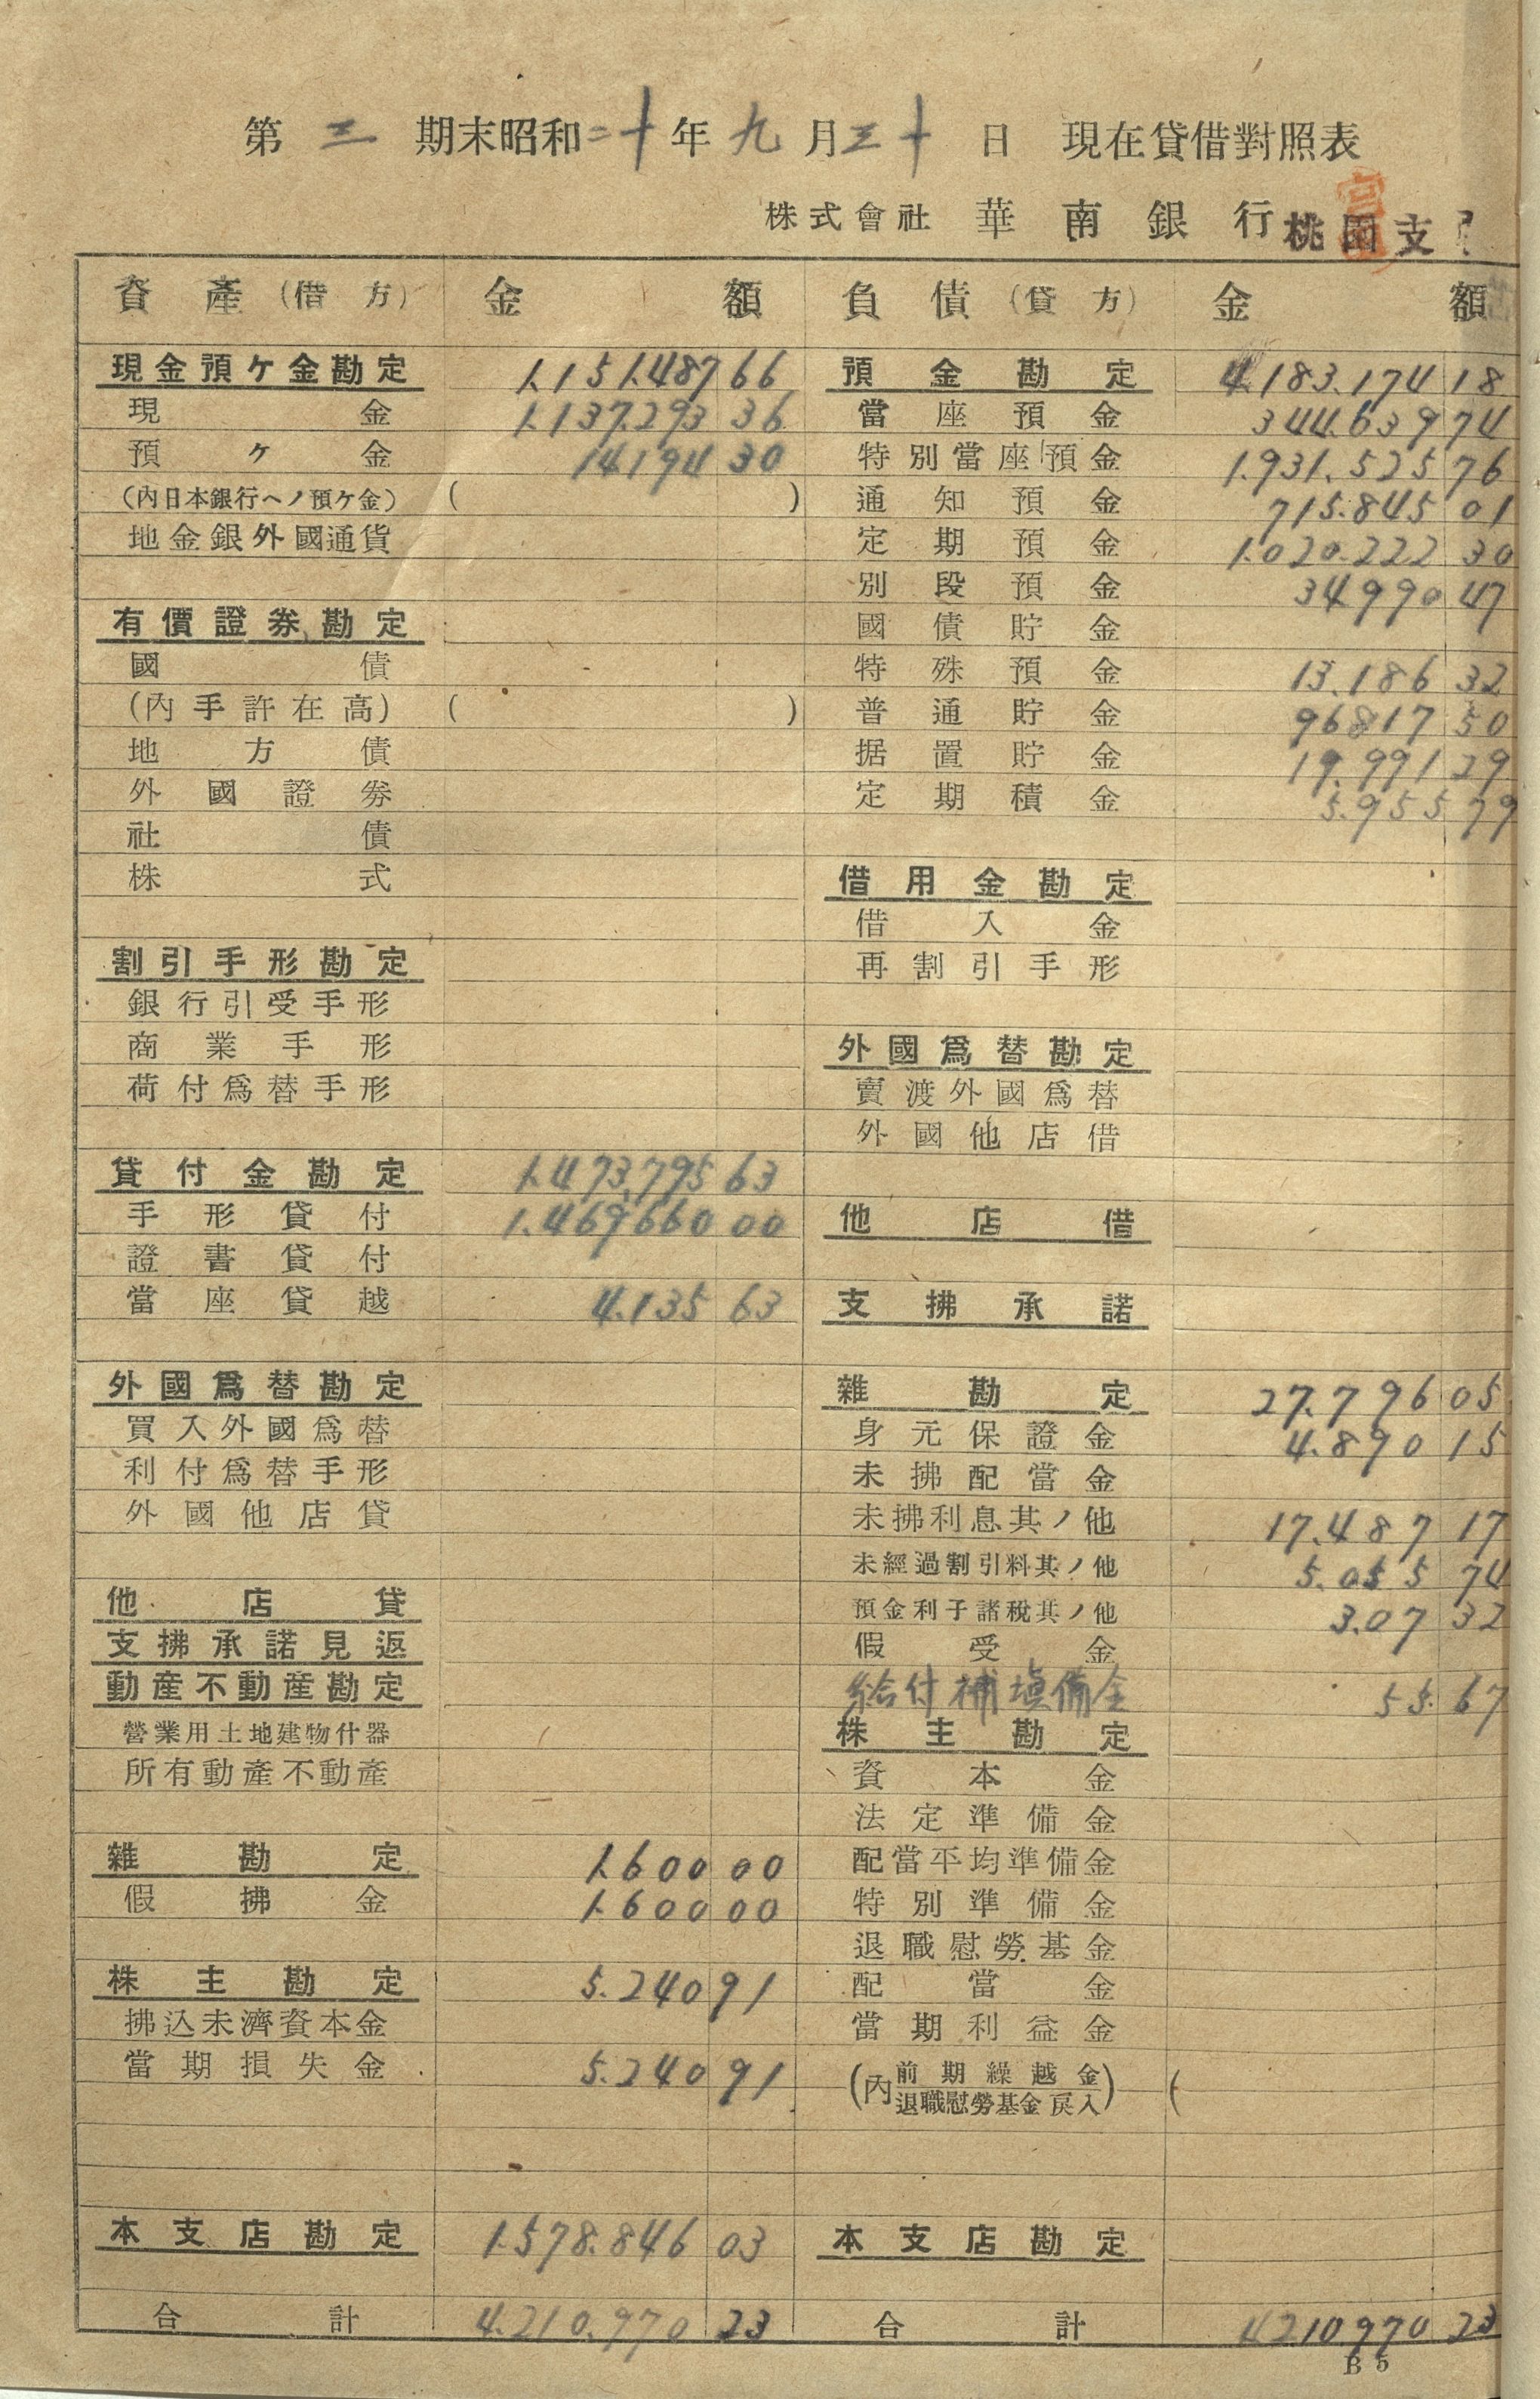 第 三 期末昭和二十年九月三十日 現在貸借對照表
株式會社 華南銀行 桃園支
資產(借方) 金額
現金預ケ金勘定 1.151.487 66
現金 1.137.293 36
預ケ金 14.194 30
(內日本銀行ヘノ預ケ金) ( )
地金銀外國通貨
有價證券勘定
國債
(內手許在高) ( )
地方債
外國證券
社債
株式
割引手形勘定
銀行引受手形
商業手形
荷付爲替手形
貸付金勘定 1.473.795 63
手形貸付 1.469.660 00
證書貸付
當座貸越 4.135 63
外國爲替勘定
買入外國爲替
利付爲替手形
外國他店貸
他店貸
支拂承諾見返
動產不動產勘定
營業用土地建物什器
所有動產不動產
雜勘定 1.600 00
假拂金 1.600 00
株主勘定 5.240 91
拂込未濟資本金
當期損失金 5.240 91
本支店勘定 1.578.846 03
合計 4.210.970 23
負債(貸方) 金額
預金勘定 4.183.174 18
當座預金 344.639 74
特別當座預金 1.931.525 76
通知預金 715.845 01
定期預金 1.020.222 30
別段預金 34.990 47
國債貯金
特殊預金 13.186 32
普通貯金 96817 50
据置貯金 19.991 29
定期積金 5.955 79
借用金勘定
借入金
再割引手形
外國爲替勘定
賣渡外國爲替
外國他店借
他店借
支拂承諾
雜勘定 27.796 05
身元保證金 4.890 15
未拂配當金
未拂利息其ノ他 17.487 17
未經過割引料其ノ他 5.055 74
預金利子諸稅其ノ他 3.07 32
假受金
給付補塡備金 55. 67
株主勘定
資本金
法定準備金
配當平均準備金
特別準備金
退職慰勞基金
配當金
當期利益金
(內 前期繰越金
退職慰勞基金戾入) (
本支店勘定
合計 4210970 23
B5